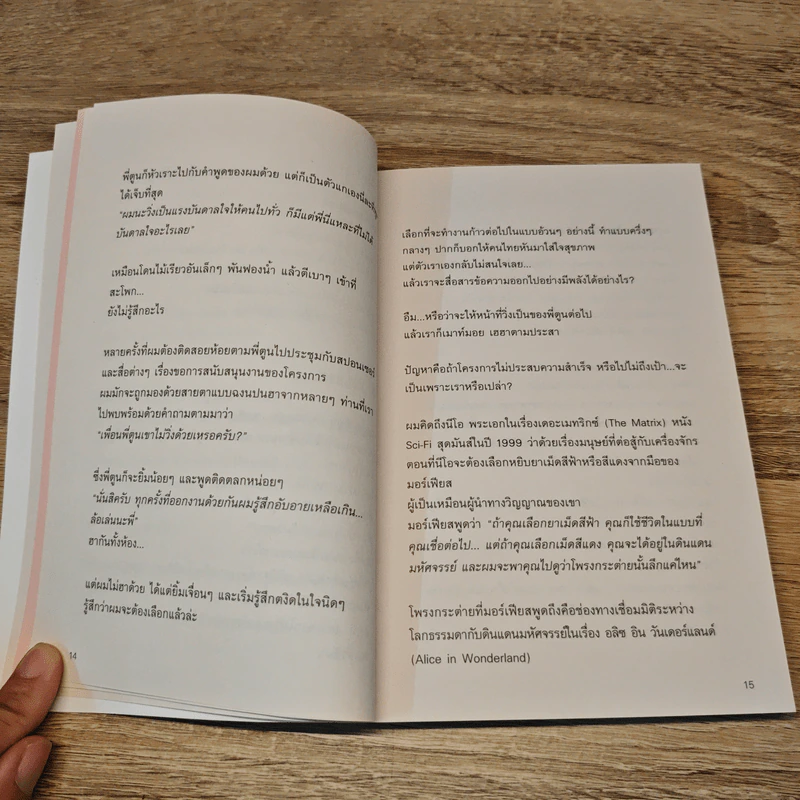 พี่ตูนก็หัวเราะไปกับคำพูดของผมด้วย แต่ก็เป็นตัวแกเองนี่ละที่
ได้เจ็บที่สุด
"ผมนะวิ่งเป็นแรงบันดาลใจให้คนไปทั่ว ก็มีแต่พี่นี่แหละที่ไม่ได้
บันดาลใจอะไรเลย"
เหมือนโดนไม้เรียวอันเล็กๆ พันฟองน้ำ แล้วตีเบาๆ เข้าที่
สะโพก...
ยังไม่รู้สึกอะไร
หลายครั้งที่ผมต้องติดสอยห้อยตามพี่ตูนไปประชุมกับสปอนเซอร์
และสื่อต่างๆ เรื่องขอการสนับสนุนงานของโครงการ
ผมมักจะถูกมองด้วยสายตาแบบฉงนปนฮาจากหลายๆ ท่านที่เรา
ไปพบพร้อมด้วยคำถามตามมาว่า
"เพื่อนพี่ตูนเขาไม่วิ่งด้วยเหรอครับ?"
ซึ่งพี่ตูนก็จะยิ้มน้อยๆ และพูดติดตลกหน่อยๆ
"นั่นสิครับ ทุกครั้งที่ออกงานด้วยกันผมรู้สึกอับอายเหลือเกิน...
ล้อเล่นนะพี่"
ฮากันทั้งห้อง...
แต่ผมไม่ฮาด้วย ได้แต่ยิ้มเจื่อนๆ และเริ่มรู้สึกตงิดในใจนิดๆ
รู้สึกว่าผมจะต้องเลือกแล้วล่ะ
14
เลือกที่จะทำงานก้าวต่อไปในแบบอ้วนๆ อย่างนี้ ทำแบบครึ่งๆ
กลางๆ ปากก็บอกให้คนไทยหันมาใส่ใจสุขภาพ
แต่ตัวเราเองกลับไม่สนใจเลย...
แล้วเราจะสื่อสารข้อความออกไปอย่างมีพลังได้อย่างไร?
อืม...หรือว่าจะให้หน้าที่วิ่งเป็นของพี่ตูนต่อไป
แล้วเราก็เมาท์มอย เฮฮาตามประสา
ปัญหาคือถ้าโครงการไม่ประสบความสำเร็จ หรือไปไม่ถึงเป้า...จะ
เป็นเพราะเราหรือเปล่า?
ผมคิดถึงนีโอ พระเอกในเรื่องเดอะเมทริกซ์ (The Matrix) หนัง
Sci-Fi สุดมันส์ในปี 1999 ว่าด้วยเรื่องมนุษย์ที่ต่อสู้กับเครื่องจักร
ตอนที่นีโอจะต้องเลือกหยิบยาเม็ดสีฟ้าหรือสีแดงจากมือของ
มอร์เฟียส
ผู้เป็นเหมือนผู้นำทางวิญญาณของเขา
มอร์เฟียสพูดว่า "ถ้าคุณเลือกยาเม็ดสีฟ้า คุณก็ใช้ชีวิตในแบบที่
คุณเชื่อต่อไป... แต่ถ้าคุณเลือกเม็ดสีแดง คุณจะได้อยู่ในดินแดน
มหัศจรรย์ และผมจะพาคุณไปดูว่าโพรงกระต่ายนั้นลึกแค่ไหน"
โพรงกระต่ายที่มอร์เฟียสพูดถึงคือช่องทางเชื่อมมิติระหว่าง
โลกธรรมดากับดินแดนมหัศจรรย์ในเรื่อง อลิซ อิน วันเดอร์แลนด์
(Alice in Wonderland)
15